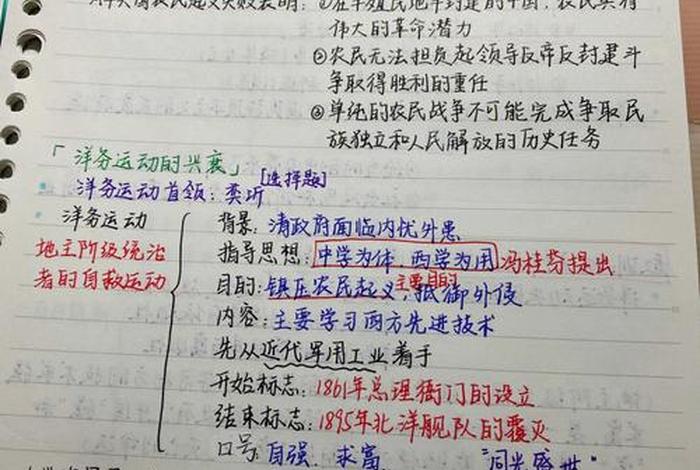 农民起义失败表明：①在半殖民地半封建的中国，农民具有
伟大的革命潜力
②农民无法担负起领导反帝反封建斗
争取得胜利的重任
③单纯的农民战争不可能完成争取民
族独立和人民解放的历史任务
「洋务运动的兴衰」
[选择题]
洋务运动首领：奕䜣
洋务运动
地主阶级统治
者的自救运动
背景：清政府面临内忧外患
指导思想：中学为体 西学为用 冯桂芬提出
主要目的
目的：镇压农民起义，抵御外侵
内容：主要学习西方先进技术
先从近代军用工业着手
开始标志：1861年总理衙门的设立
结束标志：1895年北洋舰队的覆灭
口号：自强、求富 "同光盛世"